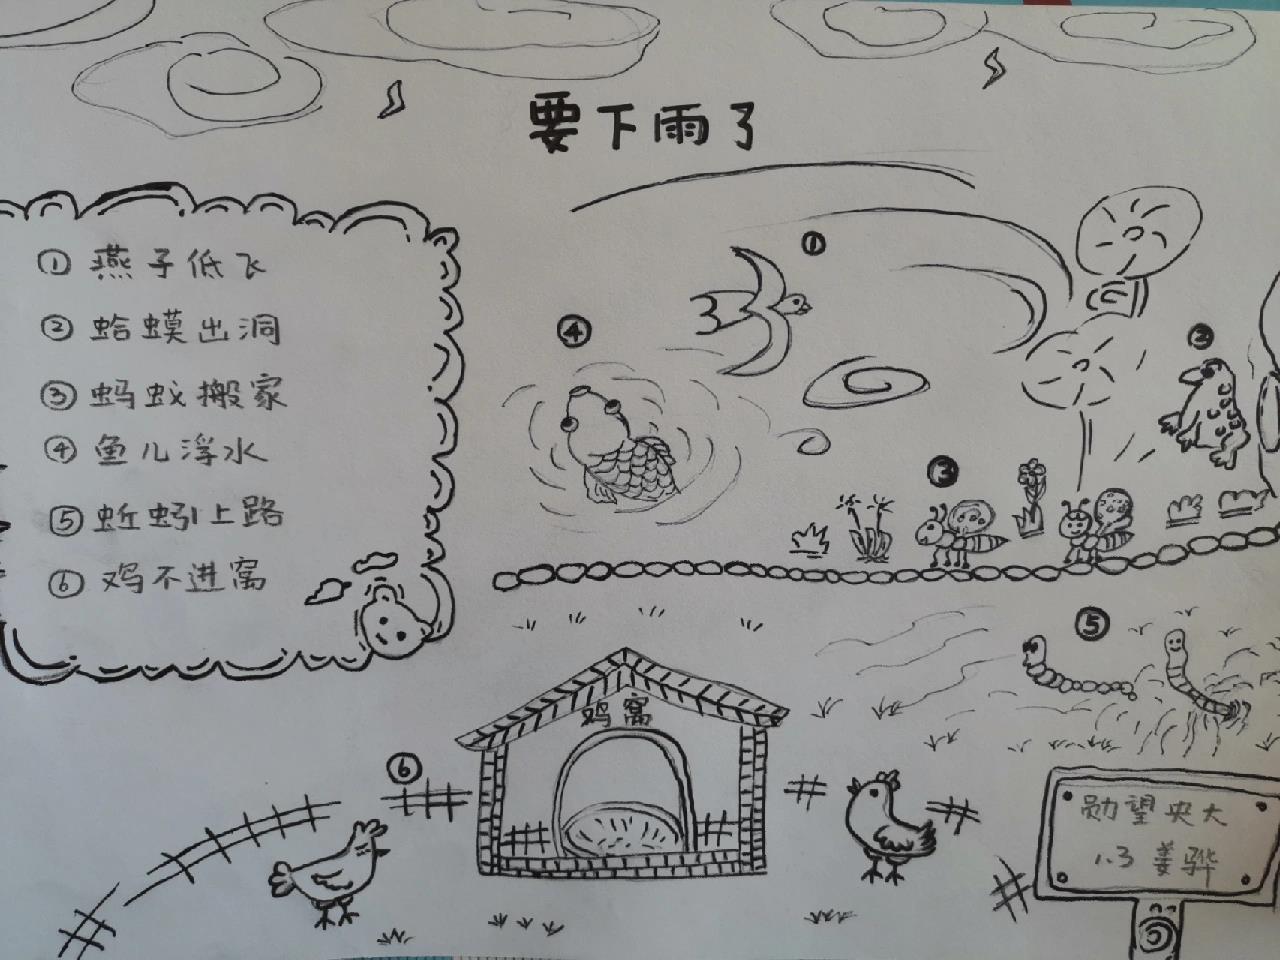 要下雨了
① 燕子低飞
② 蛤蟆出洞
③ 蚂蚁搬家
④ 鱼儿浮水
⑤ 蚯蚓上路
⑥ 鸡不进窝
①
②
④
③
⑤
鸡窝
⑥
勋望央大
1.3 姜骅